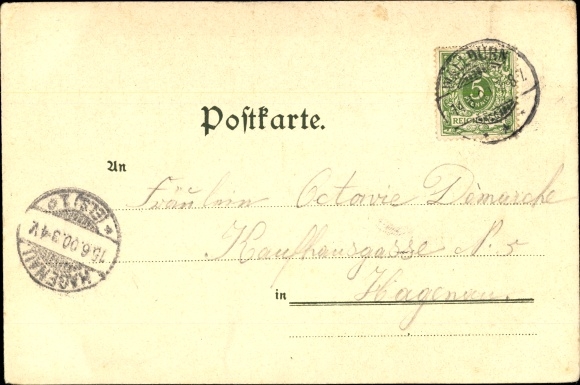 5
PFENNIG
REICHSPOST
Postkarte.
An
Fräulein Octavie Démarche
Kaufhausgasse N. 5
in Hagenau.
HAGENAU
(ELS) 1
10.6.00.3-4V.